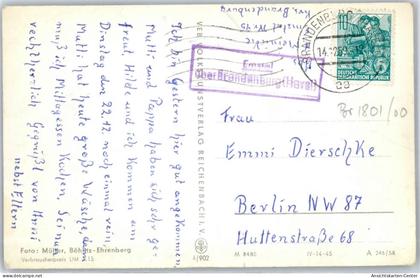 Ich bin Gestern hier gut angekommen,
Mutti und Pappa haben sich sehr ge-
freut Hilde und ich kommen am
Dienstag den 22.12 noch einmal rein,
Mutti hat heute große Wäsche, da
muß ich Mittagessen Kochen, Sei nun
recht herzlich Gegrüßt von Heini
nebst Eltern
Foto: Müller, Böhlitz-Ehrenberg
Verbraucherpreis DM 0.15
VEB VOLKSKUNSTVERLAG REICHENBACH I. V.
4/902
Emstal
über Brandenburg (Havel)
BRANDENBURG
10
DEUTSCHE
DEMOKRATISCHE REPUBLIK
Br 1801/00
Frau
Emmi Dierschke
Berlin NW 87
Huttenstraße 68
M 8480 IV-14-45 A 246/58